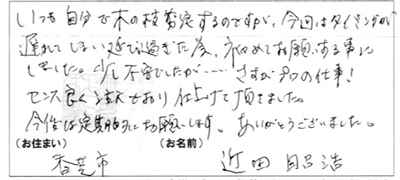 いつも自分で木の枝剪定するのですが、今回はタイミングが
遅れてしまい延び過ぎた為、初めてお願いする事に
しました。少し不安でしたが……さすがプロの仕事!
センス良く注文どおり仕上げて頂きました。
今後は定期的にお願いします。ありがとうございました。
(お住まい) (お名前)
香芝市 近田 浩